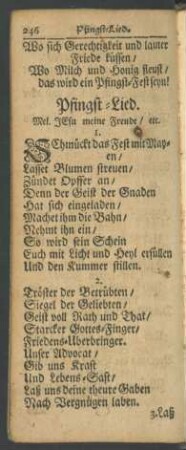 246 Pfingst-Lied.
Wo sich Gerechtigkeit und lauter
Friede küssen/
Wo Milch und Honig fleust/
das wird ein Pfingst-Fest seyn!
Pfingst-Lied.
Mel. JEsu meine Freude/ etc.
1.
SChmückt das Fest mit May-
en/
Lasset Blumen streuen/
Zündet Opffer an/
Denn der Geist der Gnaden
Hat sich eingeladen/
Machet ihm die Bahn/
Nehmt ihn ein/
So wird sein Schein
Euch mit Licht und Heyl erfüllen
Und den Kummer stillen.
2.
Tröster der Betrübten/
Siegel der Geliebten/
Geist voll Rath und That/
Starcker Gottes-Finger/
Friedens-Uberbringer.
Unser Advocat/
Gib uns Krafft
Und Lebens-Safft/
Laß uns deine theure Gaben
Nach Vergnügen laben.
3. Laß